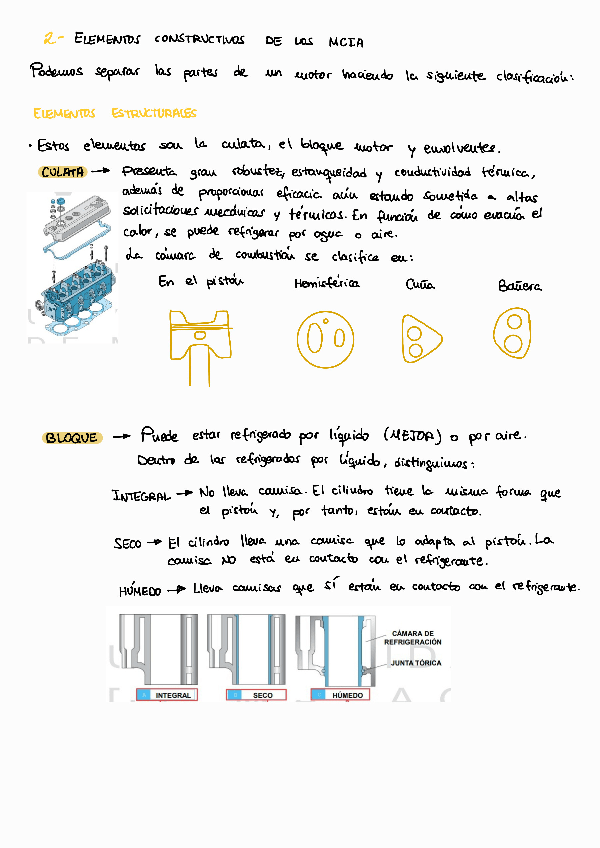 2.- ELEMENTOS CONSTRUCTIVOS DE LOS MCIA
Podemos separar las partes de un motor haciendo la siguiente clasificación:
ELEMENTOS ESTRUCTURALES
· Estos elementos son la culata, el bloque motor y envolventes.
CULATA → Presenta gran robustez, estanqueidad y conductividad térmica,
además de proporcionar eficacia aún estando sometida a altas
solicitaciones mecánicas y térmicas. En función de cómo evacúa el
calor, se puede refrigerar por agua o aire.
La cámara de combustión se clasifica en:
En el pistón Hemisférica Cuña Bañera
BLOQUE → Puede estar refrigerado por líquido (MEJOR) o por aire.
Dentro de los refrigerados por líquido, distinguimos:
INTEGRAL → No lleva camisa. El cilindro tiene la misma forma que
el pistón y, por tanto, están en contacto.
SECO → El cilindro lleva una camisa que lo adapta al pistón. La
camisa NO está en contacto con el refrigerante.
HÚMEDO → Lleva camisas que SÍ están en contacto con el refrigerante.
CÁMARA DE
REFRIGERACIÓN
JUNTA TÓRICA
A INTEGRAL B SECO C HÚMEDO